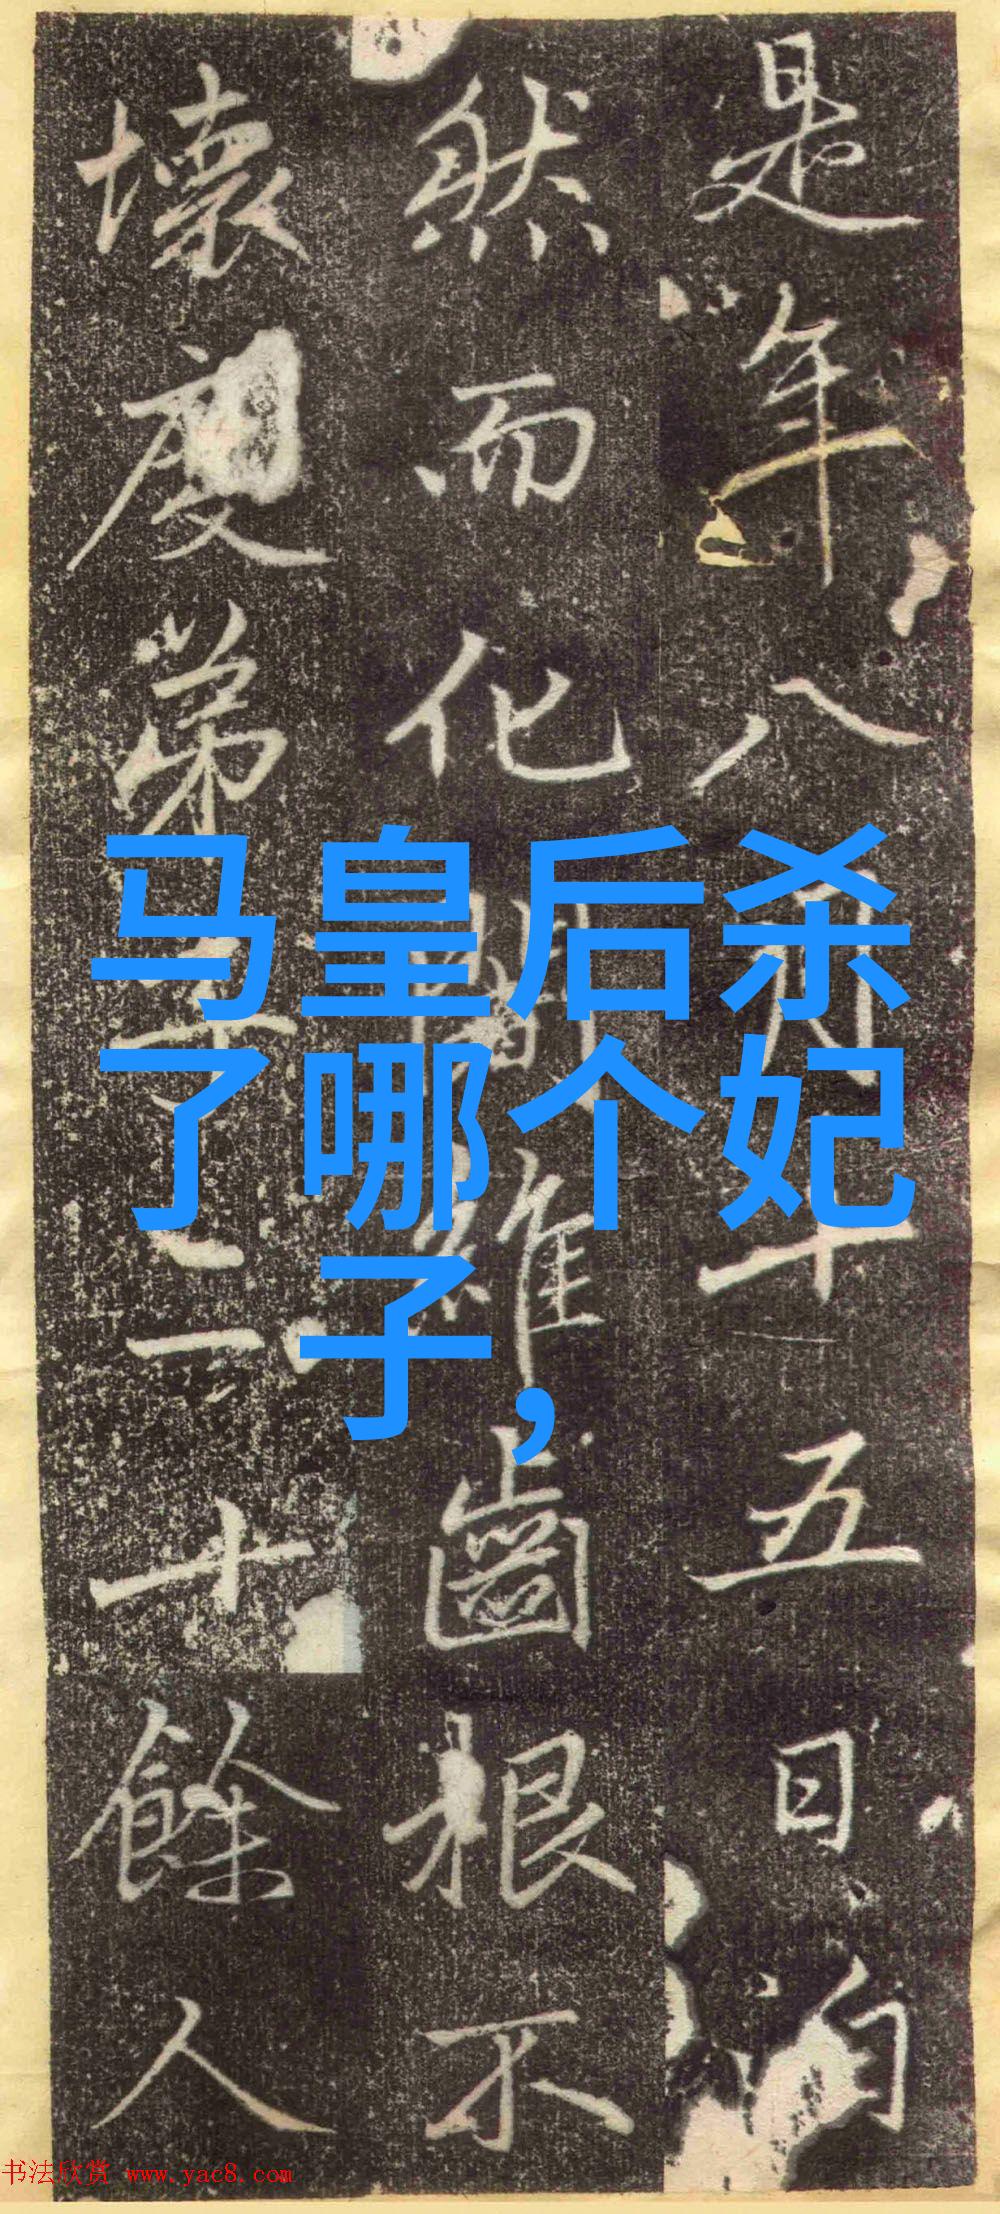 是年八月十五日旬
然而化閉維齒根不
壞度弟子二十餘人
马皇后杀
了哪个妃
子，
书法欣赏 www.yac8.com